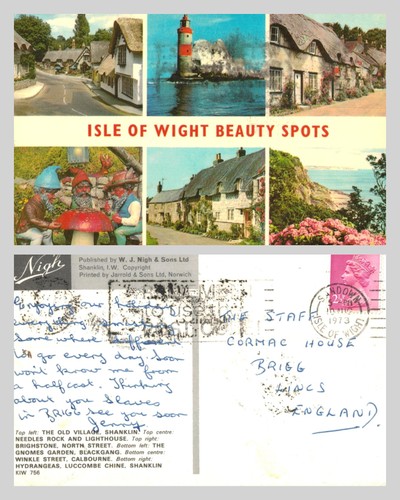 ISLE OF WIGHT BEAUTY SPOTS
Nigh
Published by W. J. Nigh & Sons Ltd
Shanklin, I.W. Copyright
Printed by Jarrold & Sons Ltd, Norwich
SANDOWN
1973
ISLE OF WIGHT
Enjoying our holiday
everything
somewhere different
to go every day. Soon
won't know me from
a halfcast. Thinking
about you Slaves
in BRIGG see you soon
Jenny
THE STAFF
CORMAC HOUSE
BRIGG
LINCS
ENGLAND
Top left: THE OLD VILLAGE, SHANKLIN. Top centre:
NEEDLES ROCK AND LIGHTHOUSE. Top right:
BRIGHSTONE, NORTH STREET. Bottom left: THE
GNOMES GARDEN, BLACKGANG. Bottom centre:
WINKLE STREET, CALBOURNE. Bottom right:
HYDRANGEAS, LUCCOMBE CHINE, SHANKLIN
KIW 756